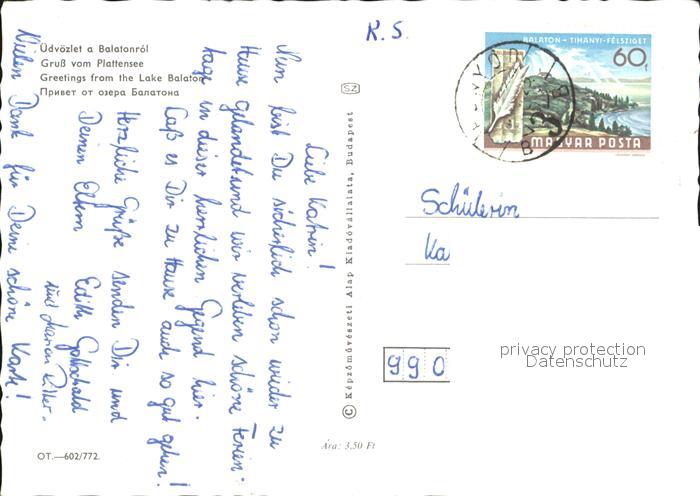 Üdvözlet a Balatonról
Gruß vom Plattensee
Greetings from the Lake Balaton
Привет от озера Балатона
Liebe Katrin!
Nun bist Du sicherlich schon wieder zu
Hause gelandet und wir verleben schöne Ferien-
tage in dieser herrlichen Gegend hier.
Laß es Dir zu Hause auch so gut gehen!
Herzliche Grüße senden Dir und
Deinen Eltern Edith Gottschald
und Marion Ritter.
Vielen Dank für Deine schöne Karte!
OT.—602/772.
Ára: 3,50 Ft
© Képzőművészeti Alap Kiadóvállalata, Budapest
SZ
K. S.
BALATON – TIHANYI-FÉLSZIGET
60f
MAGYAR POSTA
Schülerin
Ka
990
privacy protection
Datenschutz